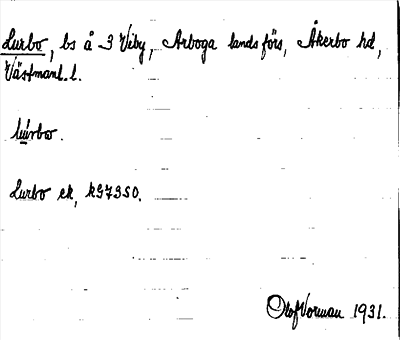 Lurbo, bs å 3 Viby, Arboga landsförs, Åkerbo hd,
Västmanl. l.
Lurbo ek, kG73SO.
Olof Vorman 1931.